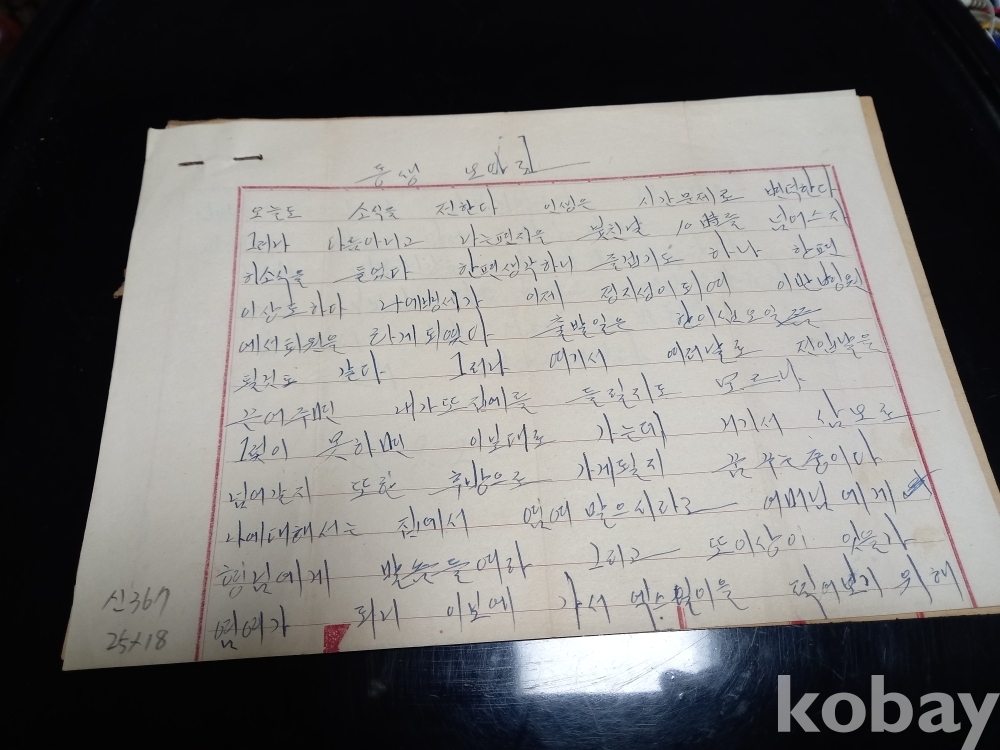 동생 보아라
오늘도 소식을 전한다 인생은 시간문제로 변덕한다
그러나 다름아니고 나는편지을 붗친날 10時을 넘어스자
히소식을 들었다 한편생각하니 즐겁기도 하나 한편
이상도하다 나에병세가 이제 정지성이되여 이만병원
에서퇴원을 하게되였다 출발일은 한이십오일
될것도 같다 그러나 여기서 여러날로 전입날을
끈어주면 내가또집에들 들릴지도 모르나
그렇이 못하면 이보대로 가는데 거기서 삼보로
넘어갈지 또한 후방으로 가게될지 꿈꾸는중이다
나에대해서는 집에서 염여말으시라고 어머님에게
형님에게 들여라 그리고 또이상이 있을가
염여가 되니 이보에 가서 엑스 찍어보기 위해
신367
25+18
kobay